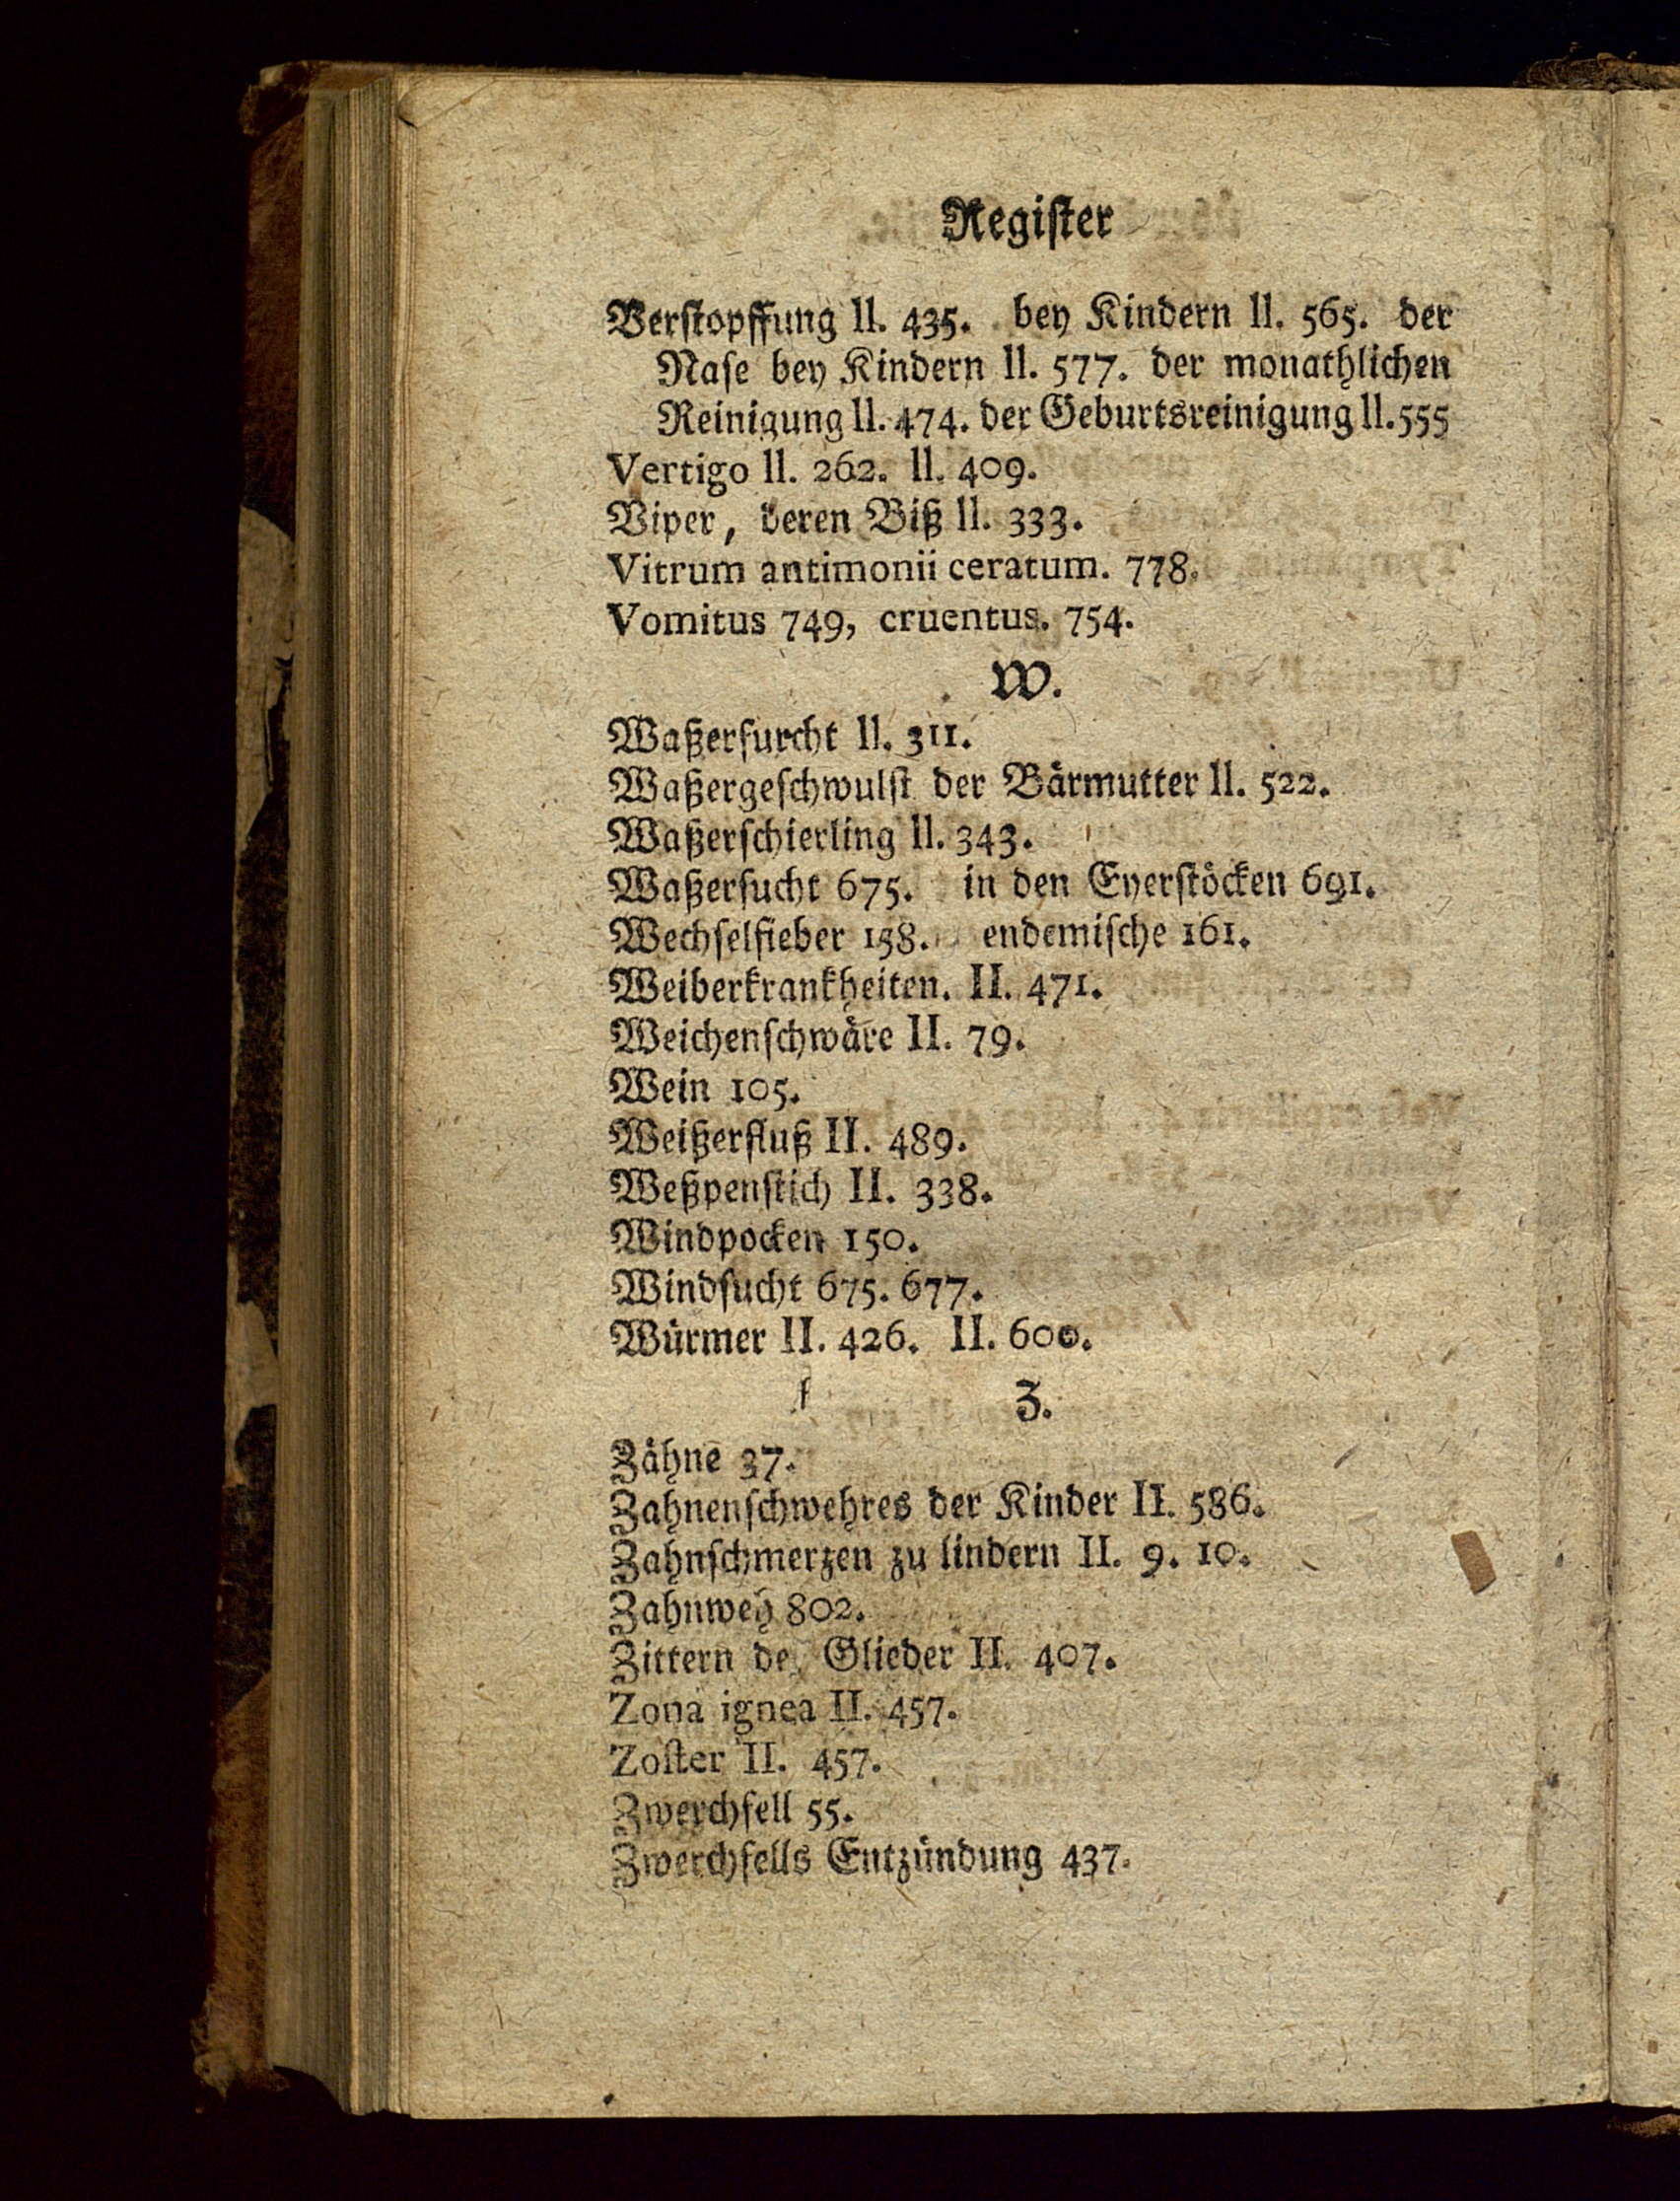 Register
Verstopffung ll. 435. bey Kindern ll. 565. der
Nase bey Kindern ll. 577. der monathlichen
Reinigung ll. 474. der Geburtsreinigung ll. 555
Vertigo ll. 262. ll. 409.
Viper, deren Biß ll. 333.
Vitrum antimonii ceratum. 778.
Vomitus 749, cruentus. 754.
W.
Waßerfurcht ll. 311.
Waßergeschwulst der Bärmutter ll. 522.
Waßerschierling ll. 343.
Waßersucht 675. in den Eyerstöcken 691.
Wechselfieber 158. endemische 161.
Weiberkrankheiten. II. 471.
Weichenschwäre II. 79.
Wein 105.
Weißerfluß II. 489.
Weßpenstich II. 338.
Windpocken 150.
Windsucht 675. 677.
Würmer II. 426. II. 600.
Z.
Zähne 37.
Zahnenschwehres der Kinder II. 586.
Zahnschmerzen zu lindern II. 9. 10.
Zahnweh 802.
Zittern de Glieder II. 407.
Zona ignea II. 457.
Zoster II. 457.
Zwerchfell 55.
Zwerchfells Entzündung 437.